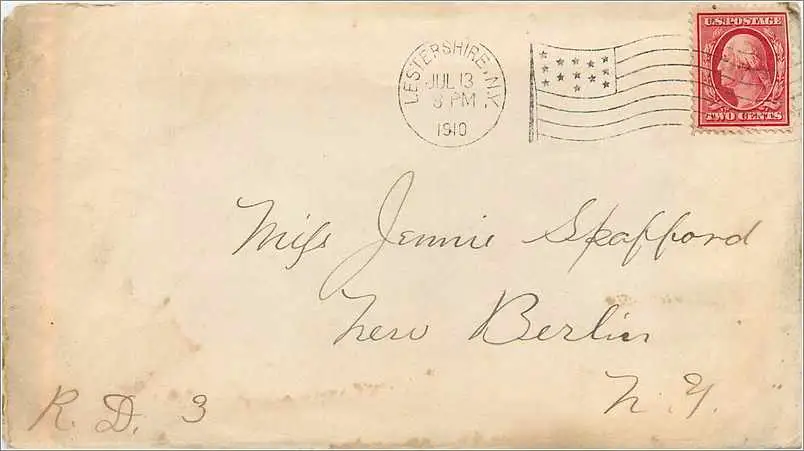 LESTERSHIRE, N.Y.
JUL 13
8 PM
1910
U.S. POSTAGE
TWO CENTS
Miss Jennie Spafford
New Berlin
N. Y.
R. D. 3